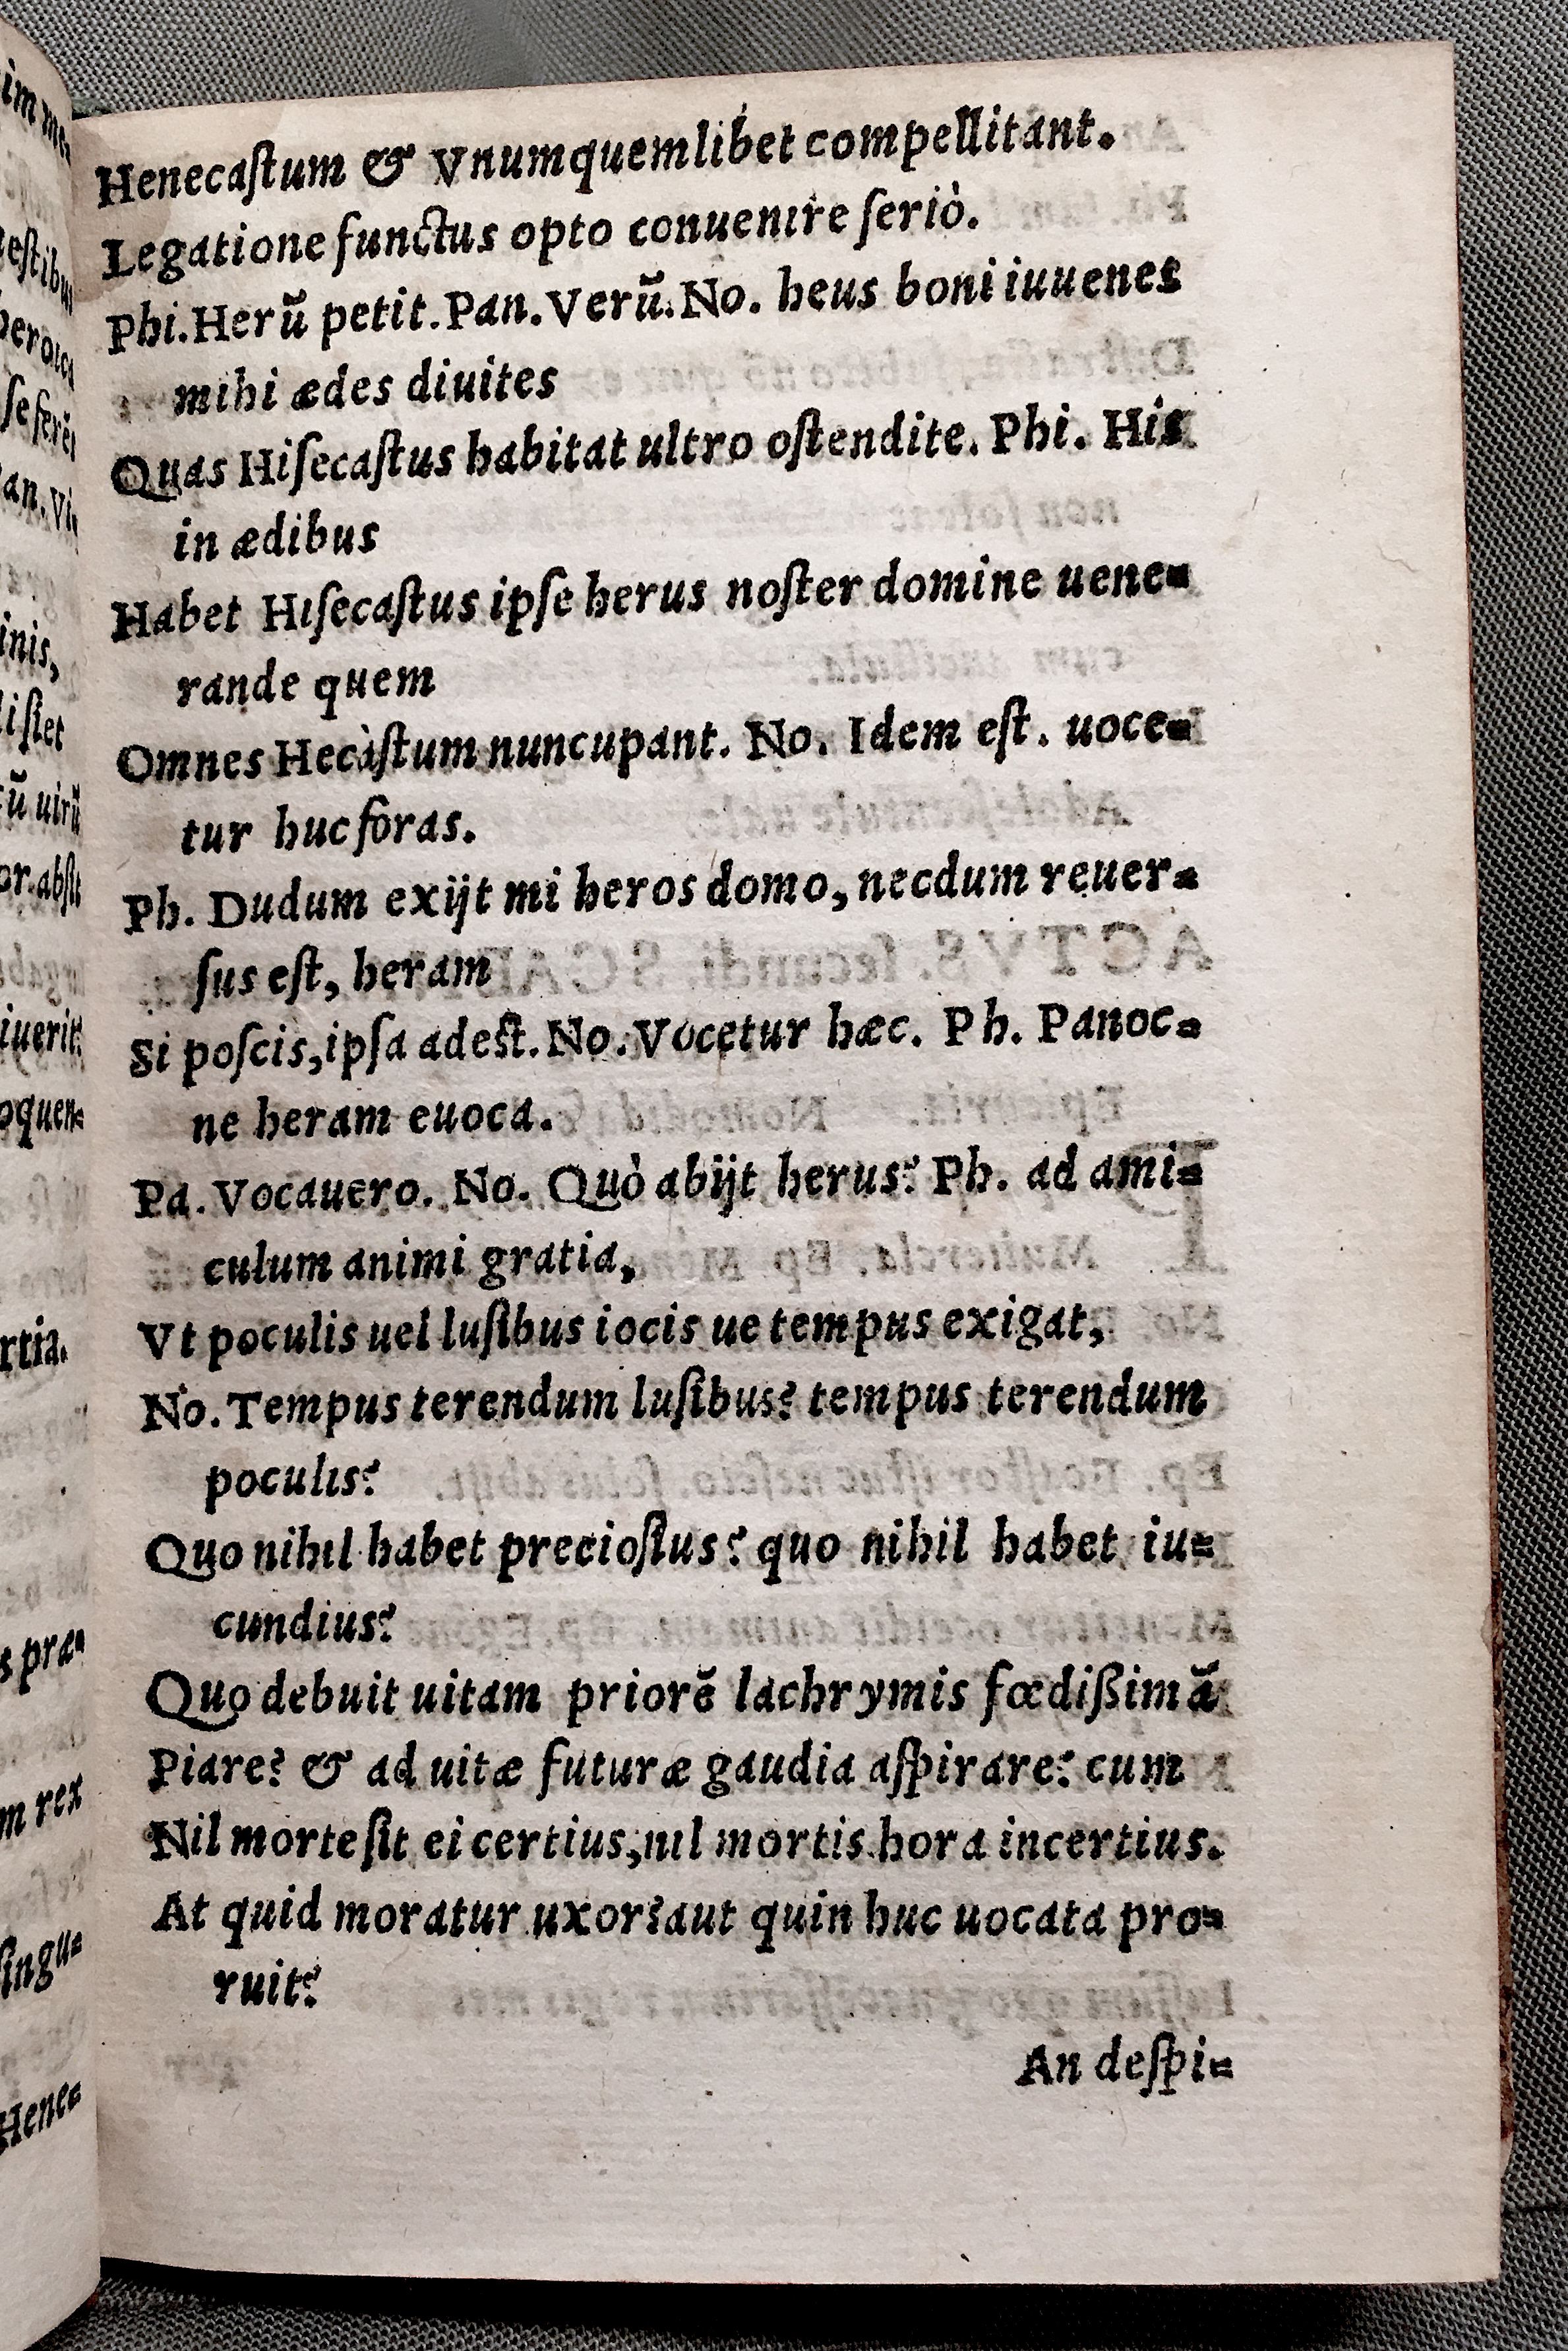 Henecaſtum & Vnumquemlibet compellitant.
Legatione functus opto conuenire ſeriò.
Phi. Herũ petit. Pan. Verũ. No. heus boni iuuenes
mihi ædes diuites
Quas Hiſecaſtus habitat ultro oſtendite. Phi. His
in ædibus
Habet Hiſecaſtus ipſe herus noſter domine uene-
rande quem
Omnes Hecàſtum nuncupant. No. Idem eſt. uoce-
tur huc foras.
Ph. Dudum exijt mi heros domo, necdum reuer-
ſus eſt, heram
Si poſcis, ipſa adeſt. No. Vocetur hæc. Ph. Panoc-
ne heram euoca.
Pa. Vocauero. No. Quò abijt herus? Ph. ad ami-
culum animi gratia,
Vt poculis uel luſibus iocis ue tempus exigat,
No. Tempus terendum luſibus? tempus terendum
poculis?
Quo nihil habet precioſius? quo nihil habet iu-
cundius?
Quo debuit uitam priorẽ lachrymis fœdißimã
Piare? & ad uitæ futuræ gaudia aſpirare? cum
Nil morte ſit ei certius, nil mortis hora incertius.
At quid moratur uxor? aut quin huc uocata pro-
ruit?
An deſpi-